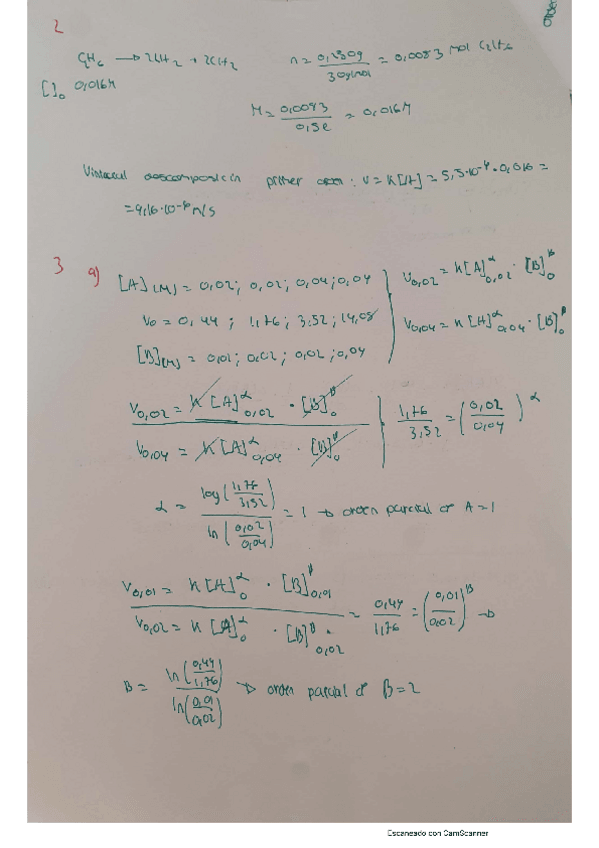 2
C₂H₆ → 2CH₂ + 2CH₂ n = 0,2309 / 30g/mol = 0,0083 mol C₂H₆
[]₀ 0,016M
M = 0,0083 / 0,5l = 0,016M
descomposición primer orden : v = K[A] = 5,5·10⁻⁴·0,016 =
= 9,16·10⁻⁶ M/s
3 a) [A](M) = 0,02; 0,02; 0,04; 0,04
V₀,₀₂ = K[A]^α₀,₀₂ · [B]₀^β
V₀ = 0,44 ; 1,76 ; 3,52 ; 14,08
V₀,₀₄ = K[A]^α₀,₀₄ · [B]₀^β
[B](M) = 0,01; 0,02; 0,02; 0,04
V₀,₀₂ = K[A]^α₀,₀₂ · [B]₀^β
V₀,₀₄ = K[A]^α₀,₀₄ · [B]₀^β
1,76 / 3,52 = (0,02 / 0,04)^α
α = log(1,76 / 3,52) / ln(0,02 / 0,04) = 1 → orden parcial de A = 1
V₀,₀₁ = K[A]₀^α · [B]^β₀,₀₁
V₀,₀₂ = K[A]₀^α · [B]^β₀,₀₂
= 0,44 / 1,76 = (0,01 / 0,02)^β →
B = ln(0,44 / 1,76) / ln(0,01 / 0,02) → orden parcial de B = 2
Escaneado con CamScanner